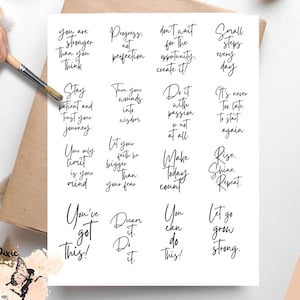 you are
stronger
than you
think
Progress,
not
perfection
don't wait
for the
opportunity,
create it!
Small
steps
every
day
Stay
patient and
trust your
journey
Turn your
wounds
into
wisdom
Do it
with
passion
or not
at all
It's never
too late
to start
again
You only
limit
is your
mind
Let you
faith be
bigger
than
your fear
Make
today
count
Rise.
Shine.
Repeat.
You've
got
this!
Dream
it.
Do
it.
You
can
do
this!
Let go
grow
strong.